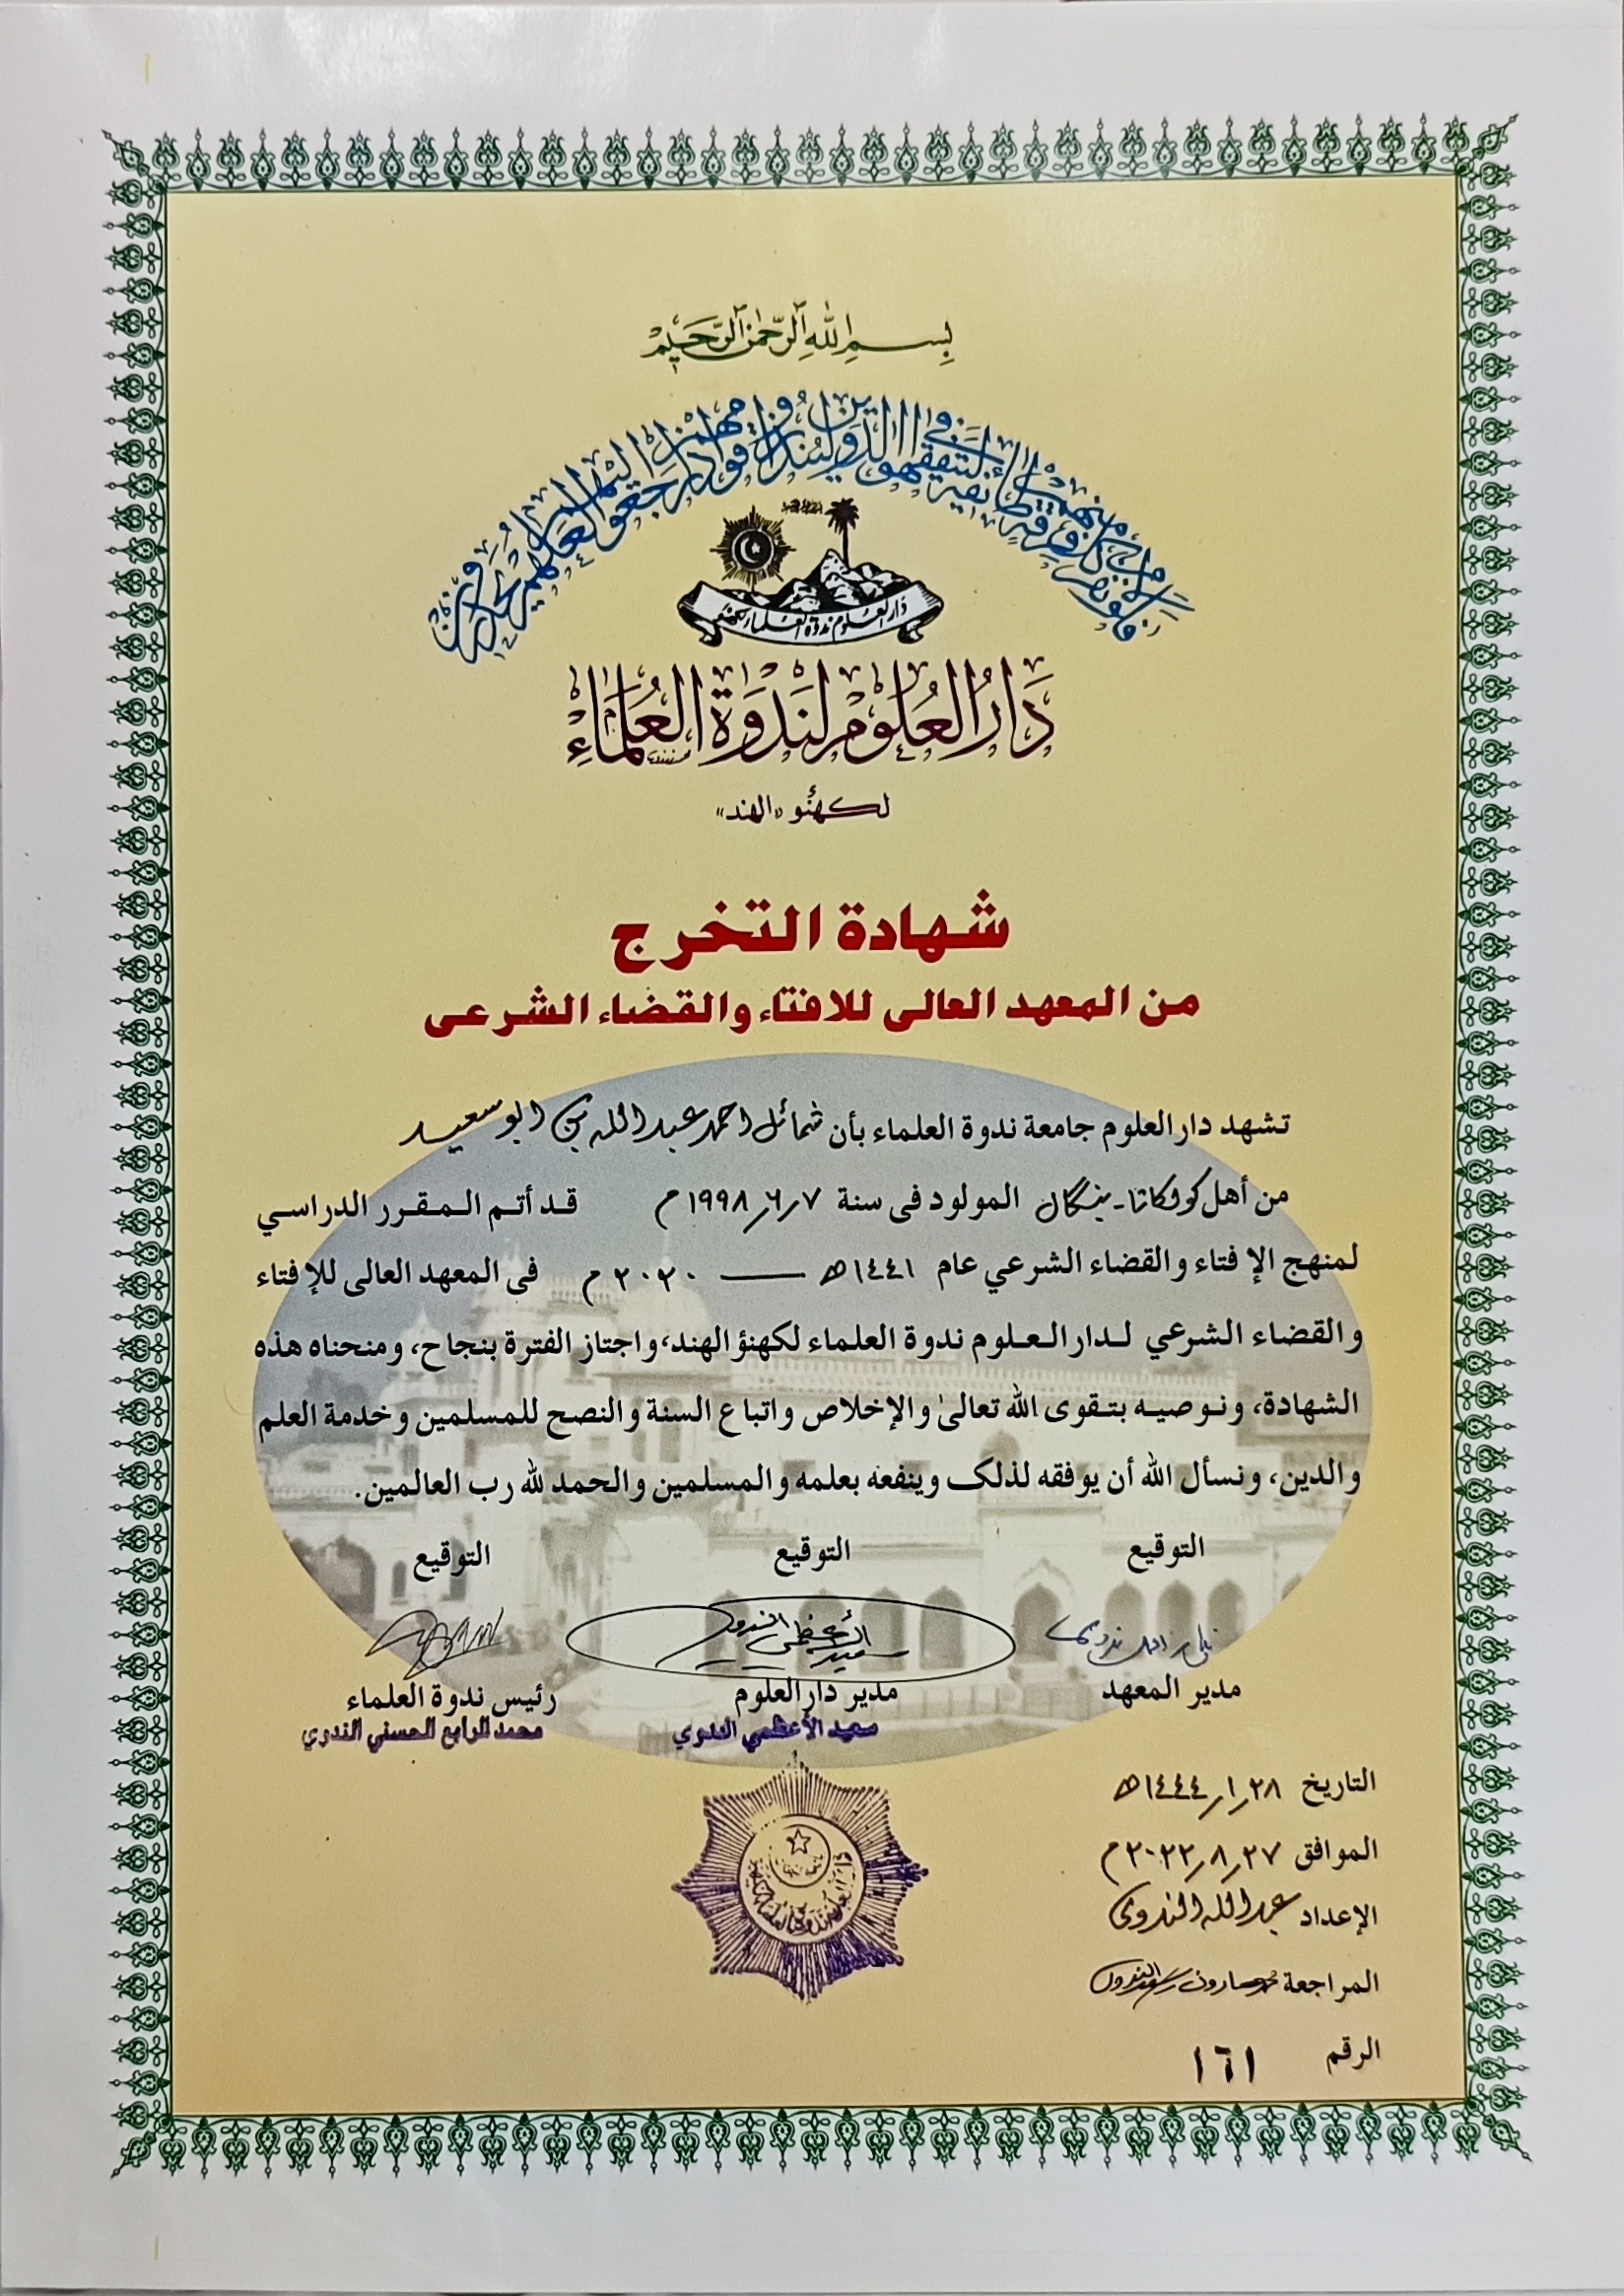 بِسْمِ اللهِ الرَّحْمٰنِ الرَّحِيْمِ
فلولا نفر من كل فرقة منهم طائفة ليتفقهوا في الدين ولينذروا قومهم إذا رجعوا إليهم لعلهم يحذرون
دار العلوم ندوة العلماء لكهنؤ
دَارُ العُلُوْم لنَدْوَة العُلَمَاءِ
لكهنؤ «الهند»
شهادة التخرج
من المعهد العالى للافتاء والقضاء الشرعى
تشهد دار العلوم جامعة ندوة العلماء بأن شمائل احمد عبد الله بن ابو سعيد
من أهل كولكاتا - بنگال المولود فى سنة ٧/٦/١٩٩٨م قد أتم المقرر الدراسي
لمنهج الإفتاء والقضاء الشرعي عام ١٤٤١ھ —— ٢٠٢٠م فى المعهد العالى للإفتاء
والقضاء الشرعي لدار العلوم ندوة العلماء لكهنؤ الهند، واجتاز الفترة بنجاح، ومنحناه هذه
الشهادة، ونوصيه بتقوى الله تعالىٰ والإخلاص واتباع السنة والنصح للمسلمين وخدمة العلم
والدين، ونسأل الله أن يوفقه لذلک وينفعه بعلمه والمسلمين والحمد لله رب العالمين.
التوقيع التوقيع التوقيع
سعيد الأعظمي الندوي
مدير المعهد مدير دار العلوم رئيس ندوة العلماء
سعيد الأعظمي الندوي محمد الرابع الحسني الندوي
التاريخ ٢٨/١/١٤٤٤ھ
الموافق ٢٧/٨/٢٠٢٢م
الإعداد عبد الله الندوى
المراجعة
الرقم ١٦١